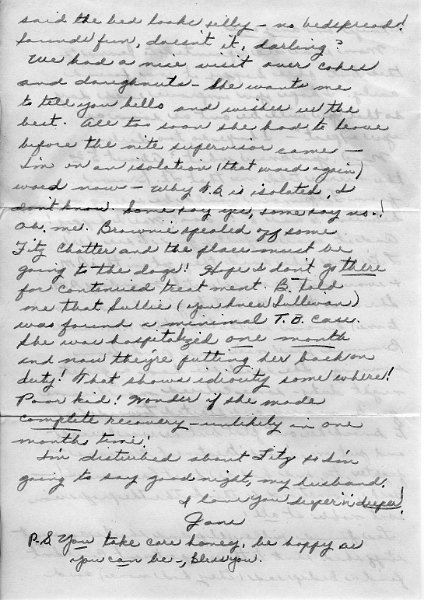 said the bed looks silly - no bedspread!
Sounds fun, doesn't it, darling?
We had a nice visit over cokes
and doughnuts - She wants me
to tell you hello and wishes us the
best. All too soon she had to leave
before the nite supervisor came -
I'm in an isolation (that word again)
ward now - Why T.B. is isolated, I
don't know. Some say yes, some say no.!
Oh, me. Brownie spealed off some
Fitz Chatter and the place must be
going to the dogs! Hope I don't go there
for continued treatment. B. told
me that Sullie (you knew Sullivan)
was found a minimal T.B. case.
She was hospitalized one month
and now they're putting her back on
duty! What shows idiocity some where!
Poor kid! Wonder if she made
complete recovery - unlikely in one
months time!
I'm disturbed about Fitz so I'm
going to say good night, my husband.
I love you deeper 'n deeper!
Jane
P.S. You take care honey, be happy as
you can be -, Bless you.